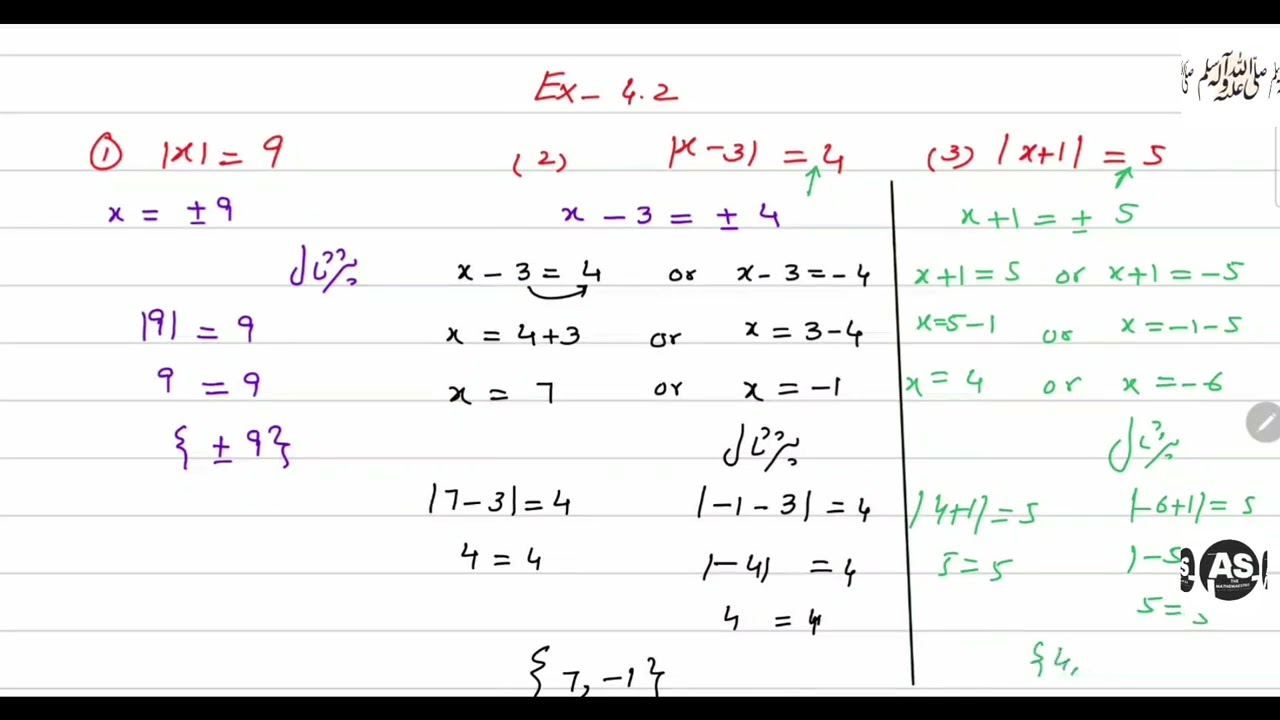 Ex- 4.2
① |x| = 9
x = ±9
پڑتال
|9| = 9
9 = 9
{ ±9}
(2) |x-3| = 4
x - 3 = ± 4
x - 3 = 4 or x - 3 = -4
x = 4+3 or x = 3-4
x = 7 or x = -1
پڑتال
|7-3| = 4 |-1-3| = 4
4 = 4 |-4| = 4
4 = 4
{ 7, -1}
(3) |x+1| = 5
x+1 = ± 5
x+1 = 5 or x+1 = -5
x=5-1 or x = -1-5
x = 4 or x = -6
پڑتال
|4+1| = 5 |-6+1| = 5
5 = 5 |-5
5 =
{4,
صلی اللہ علیہ وآلہ وسلم
AS
THE MATHEMAESTRO